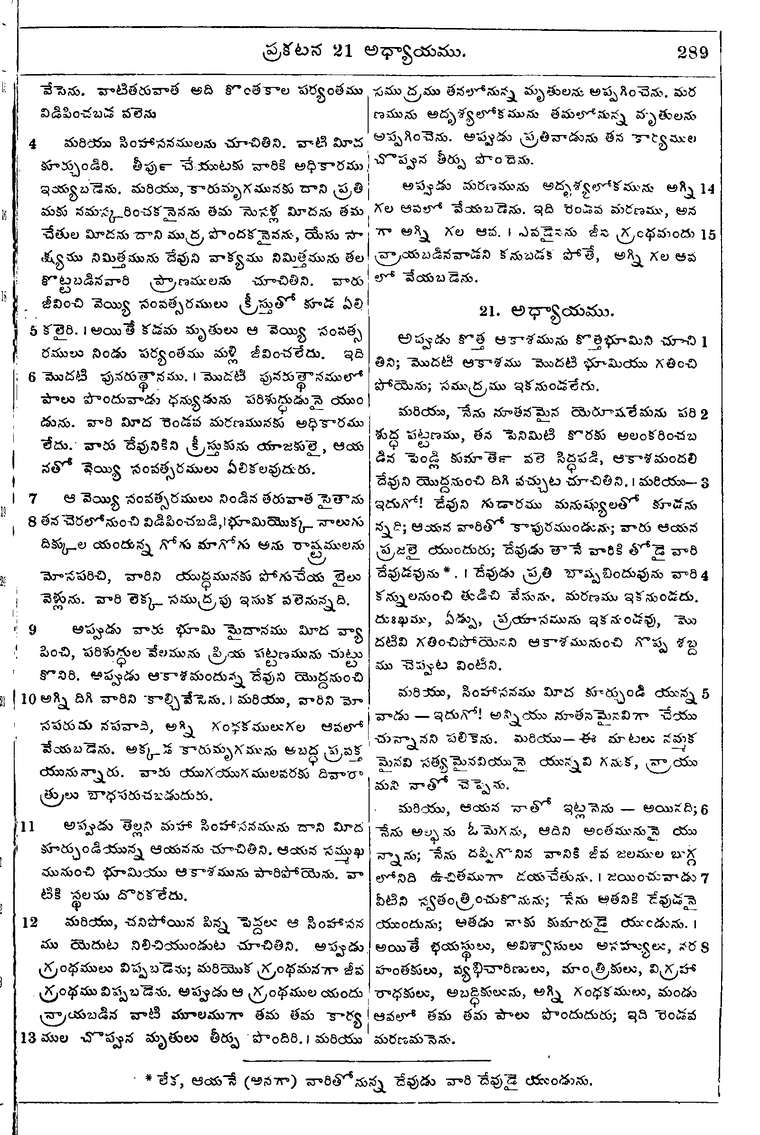 ప్రకటన 21 అధ్యాయము. 289
వేసెను. వాటితరువాత అది కొంతకాల పర్యంతము
విడిపించబడ వలెను
4 మరియు సింహాసనములను చూచితిని. వాటి మీద
కూర్చుండిరి. తీర్పు చేయుటకు వారికి అధికారము
ఇయ్యబడెను. మరియు, కారుమృగమునకు దాని ప్రతి
మకు నమస్కరించకనైనను తమ నొసళ్ల మీదను తమ
చేతుల మీదను దాని ముద్ర పొందకనైనను, యేసు సా
క్ష్యము నిమిత్తమును దేవుని వాక్యము నిమిత్తమును తల
కొట్టబడినవారి ప్రాణములను చూచితిని. వారు
జీవించి వెయ్యి సంవత్సరములు క్రీస్తుతో కూడ ఏలి
5 కలైరి. । అయితే కడమ మృతులు ఆ వెయ్యి సంవత్స
రములు నిండు పర్యంతము మళ్లి జీవించలేదు. ఇది
6 మొదటి పునరుత్థానము. । మొదటి పునరుత్థానములో
పాలు పొందువాడు ధన్యుడును పరిశుద్ధుడునై యుం
డును. వారి మీద రెండవ మరణమునకు అధికారము
లేదు. వారు దేవునికిని క్రీస్తుకును యాజకులై, ఆయ
నతో వెయ్యి సంవత్సరములు ఏలికలవుదురు.
7 ఆ వెయ్యి సంవత్సరములు నిండిన తరువాత సైతాను
8 తన చెరలోనుంచి విడిపించబడి, । భూమియొక్క నాలుగు
దిక్కుల యందున్న గోగు మాగోగు అను రాష్ట్రములను
మోసపరిచి, వారిని యుద్ధమునకు పోగుచేయ బైలు
వెళ్లును. వారి లెక్క సముద్రపు ఇసుక వలెనున్నది.
9 అప్పుడు వారు భూమి మైదానము మీద వ్యా
పించి, పరిశుద్ధుల వేలమును ప్రియ పట్టణమును చుట్టు
కొనిరి. అప్పుడు ఆకాశమందున్న దేవుని యొద్దనుంచి
10 అగ్ని దిగి వారిని కాల్చివేసెను. । మరియు, వారిని మో
సపరుచు నపవాది, అగ్ని గంధకములుగల ఆవలో
వేయబడెను. అక్కడ కారుమృగమును అబద్ధ ప్రవక్త
యునున్నారు. వారు యుగయుగములవరకు దివారా
త్రులు బాధపరుచబడుదురు.
11 అప్పుడు తెల్లని మహా సింహాసనమును దాని మీద
కూర్చుండియున్న ఆయనను చూచితిని. ఆయన సమ్ముఖ
మునుంచి భూమియు ఆకాశమును పారిపోయెను. వా
టికి స్థలము దొరకలేదు.
12 మరియు, చనిపోయిన పిన్న పెద్దలు ఆ సింహాసన
ము యెదుట నిలిచియుండుట చూచితిని. అప్పుడు
గ్రంథములు విప్పబడెను; మరియొక గ్రంథమనగా జీవ
గ్రంథము విప్పబడెను. అప్పుడు ఆ గ్రంథముల యందు
వ్రాయబడిన వాటి మూలముగా తమ తమ కార్య
13 ముల చొప్పున మృతులు తీర్పు పొందిరి. । మరియు
సముద్రము తనలోనున్న మృతులను అప్పగించెను. మర
ణమును అదృశ్యలోకమును తమలోనున్న మృతులను
అప్పగించెను. అప్పుడు ప్రతివాడును తన కార్యముల
చొప్పున తీర్పు పొందెను.
అప్పుడు మరణమును అదృశ్యలోకమును అగ్ని 14
గల ఆవలో వేయబడెను. ఇది రెండవ మరణము, అన
గా అగ్ని గల ఆవ. । ఎవడైనను జీవ గ్రంథమందు 15
వ్రాయబడినవాడని కనుబడక పోతే, అగ్ని గల ఆవ
లో వేయబడెను.
21. అధ్యాయము.
అప్పుడు కొత్త ఆకాశమును కొత్తభూమిని చూచి 1
తిని; మొదటి ఆకాశము మొదటి భూమియు గతించి
పోయెను; సముద్రము ఇకనుండలేదు.
మరియు, నేను నూతనమైన యెరూషలేమను పరి 2
శుద్ధ పట్టణము, తన పెనిమిటి కొరకు అలంకరించబ
డిన పెండ్లి కుమార్తె వలె సిద్ధపడి, ఆకాశమందలి
దేవుని యొద్దనుంచి దిగి వచ్చుట చూచితిని. । మరియు— 3
ఇదుగో! దేవుని గుడారము మనుష్యులతో కూడను
న్నది; ఆయన వారితో కాపురముండును; వారు ఆయన
ప్రజలై యుందురు; దేవుడు తానే వారికి తోడై వారి
దేవుడవును *. । దేవుడు ప్రతి బాష్పబిందువును వారి 4
కన్నులనుంచి తుడిచి వేసును. మరణము ఇకనుండదు.
దుఃఖము, ఏడ్పు, ప్రయాసమును ఇకనుండవు, మొ
దటివి గతించిపోయెనని ఆకాశమునుంచి గొప్ప శబ్ద
ము చెప్పుట వింటిని.
మరియు, సింహాసనము మీద కూర్చుండి యున్న 5
వాడు — ఇదుగో! అన్నియు నూతనమైనవిగా చేయు
చున్నానని పలికెను. మరియు— ఈ మాటలు నమ్మక
మైనవి సత్యమైనవియునై యున్నవి గనుక, వ్రాయు
మని నాతో చెప్పెను.
మరియు, ఆయన నాతో ఇట్లనెను — అయినది; 6
నేను అల్ఫను ఓమెగను, ఆదిని అంతమునునై యు
న్నాను; నేను దప్పిగొనిన వానికి జీవ జలముల బుగ్గ
లోనిది ఉచితముగా దయచేతును. । జయించువాడు 7
వీటిని స్వతంత్రించుకొనును; నేను అతనికి దేవుడనై
యుందును; అతడు నాకు కుమారుడై యుండును. ।
అయితే భయస్థులు, అవిశ్వాసులు అసహ్యులు, నర 8
హంతకులు, వ్యభిచారిణులు, మాంత్రికులు, విగ్రహా
రాధకులు, అబద్ధికులును, అగ్ని గంధకములు, మండు
ఆవలో తమ తమ పాలు పొందుదురు; ఇది రెండవ
మరణమనెను.
* లేక, ఆయనే (అనగా) వారితోనున్న దేవుడు వారి దేవుడై యుండును.